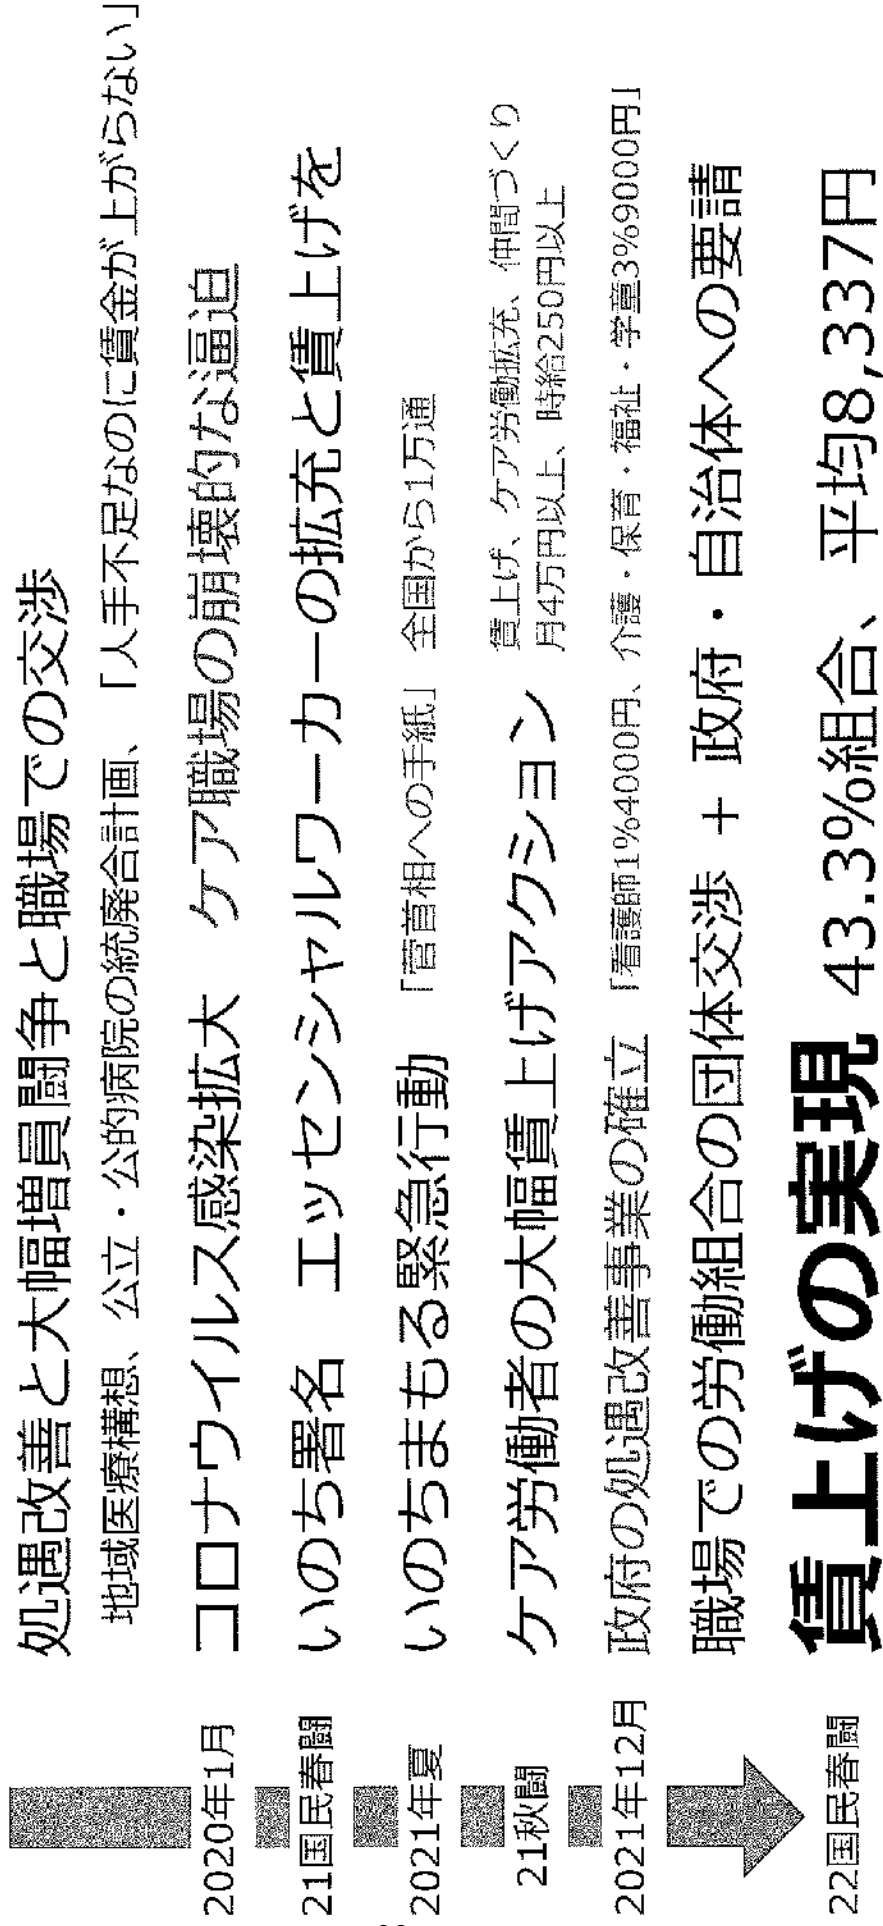 処遇改善と大幅増員闘争と職場での交渉
地域医療構想、公立・公的病院の統廃合計画、「人手不足なのに賃金が上がらない」
2020年1月 コロナウイルス感染拡大 ケア職場の崩壊的な逼迫
21国民春闘 いのち署名 エッセンシャルワーカーの拡充と賃上げを
2021年夏 いのちまもる緊急行動 「菅首相への手紙」 全国から1万通
21秋闘 ケア労働者の大幅賃上げアクション 賃上げ、ケア労働拡充、仲間づくり
月4万円以上、時給250円以上
2021年12月 政府の処遇改善事業の確立 「看護師1%4000円、介護・保育・福祉・学童3%9000円」
職場での労働組合の団体交渉 + 政府・自治体への要請
22国民春闘 賃上げの実現 43.3%組合、 平均8,337円